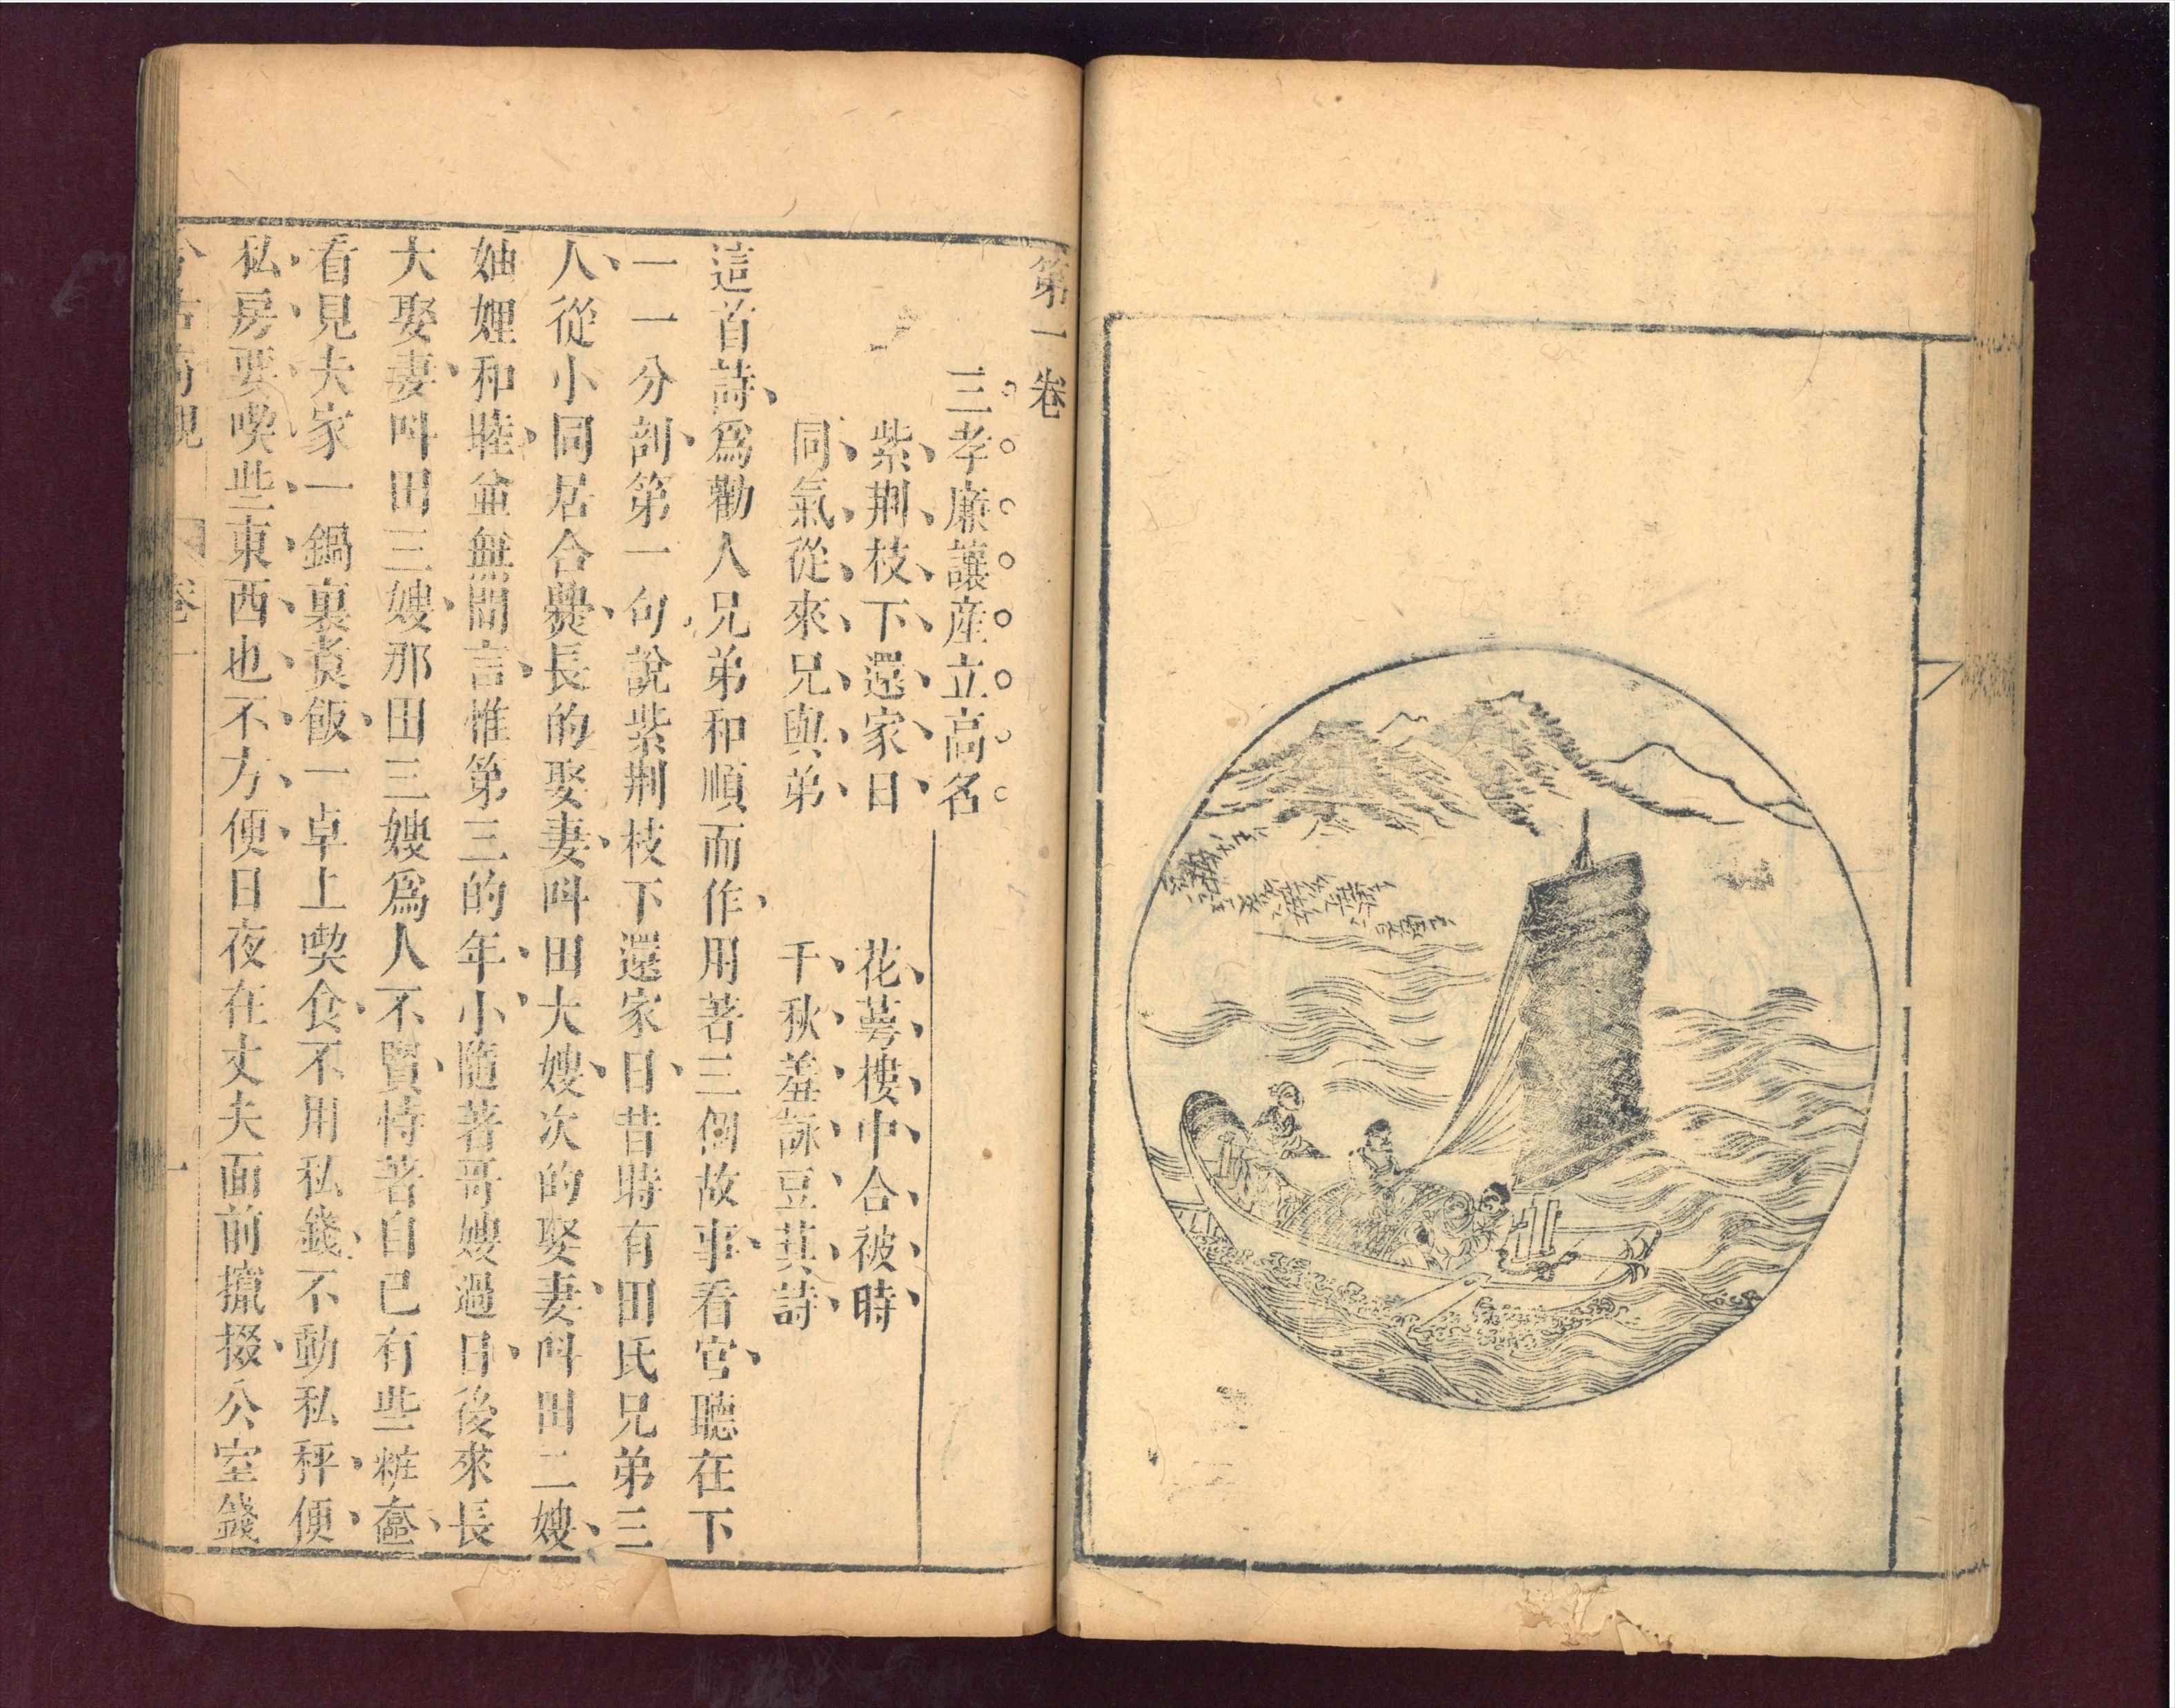 第一卷
三孝廉讓産立高名
紫荆枝下還家日 花萼樓中合被時
同氣從來兄與弟 千秋羞詠豆萁詩
這首詩爲勸人兄弟和順而作用著三個故事看官聽在下
一一分剖第一句說紫荆枝下還家日昔時有田氏兄弟三
人從小同居合爨長的娶妻呌田大嫂次的娶妻呌田二嫂
妯娌和睦並無間言惟第三的年小隨著哥嫂過日後來長
大娶妻呌田三嫂那田三嫂爲人不賢恃著自己有些粧奩
看見夫家一鍋裏煑飯一卓上喫食不用私錢不動私秤便
私房要喫些東西也不方便日夜在丈夫面前攛掇公室錢
今古奇觀 卷一 一